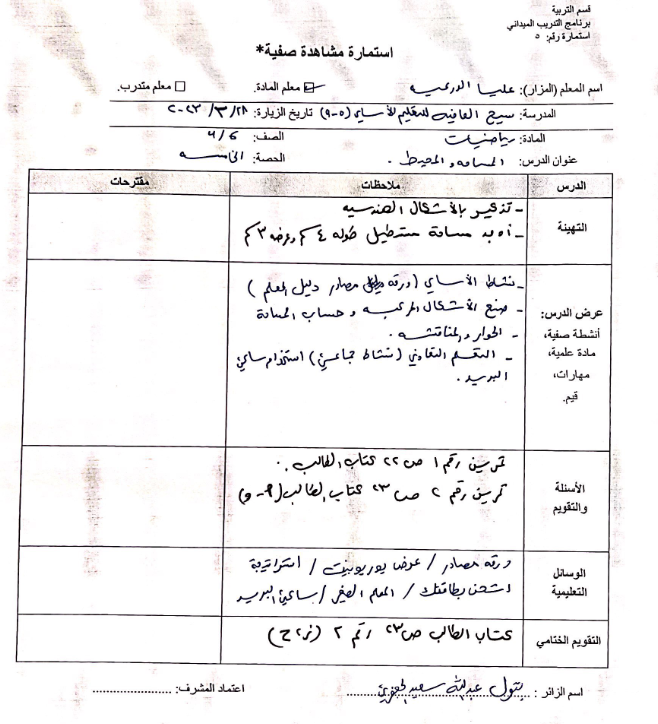 قسم التربية
برنامج التدريب الميداني
استمارة رقم: ٥
استمارة مشاهدة صفية*
اسم المعلم (المزار): عليا ☑ معلم المادة. ☐ معلم متدرب.
المدرسة: سيح العافية للتعليم الأساسي (٥-٩) تاريخ الزيارة: ٢٨/٣/٢٠٢٣
المادة: رياضيات الصف: ٦/٦
عنوان الدرس: المساحة والمحيط. الحصة: الخامسة
الدرس ملاحظات مقترحات
التهيئة
- تذكير بالأشكال الهندسية
- أوجد مساحة مستطيل طوله ٤ كم وعرضه ٣ كم
عرض الدرس:
أنشطة صفية،
مادة علمية،
مهارات،
قيم.
- نشاط الأساسي (ورقة مصادر دليل المعلم)
- صنع الأشكال المركبة وحساب المساحة
- الحوار والمناقشة.
- التعلم التعاوني (نشاط جماعي) استخدام ساعي
البريد.
الأسئلة
والتقويم
تمرين رقم ١ ص ٢٢ كتاب الطالب.
تمرين رقم ٢ ص ٢٣ كتاب الطالب (أ - و)
الوسائل
التعليمية
ورقة مصادر / عرض بوربوينت / استراتيجية
اشحن بطاقتك / المعلم الصغير / ساعي البريد
التقويم الختامي
كتاب الطالب ص ٢٣ رقم ٢ (ز، ح)
اسم الزائر: بتول عبدالله سعيد اعتماد المشرف: ........................